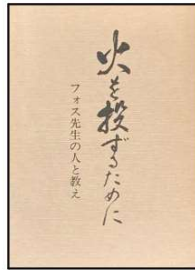 火を投ずるために
フォス先生の人と教え